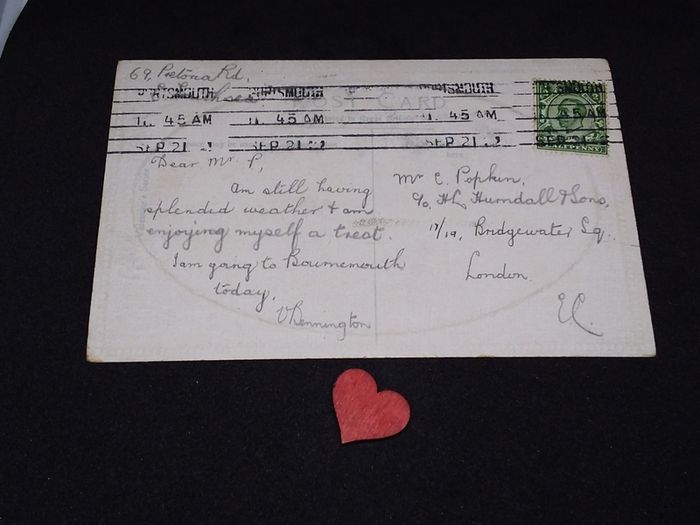 69, Pretoria Rd,
PORTSMOUTH PORTSMOUTH PORTSMOUTH PORTSMOUTH
POST CARD
45 AM 45 AM 45 AM 45 AM
SEP 21 SEP 21 SEP 21
HALFPENNY
Dear Mr. P,
am still having
splendid weather & am
enjoying myself a treat.
I am going to Bournemouth
today,
V Bennington
Mr C. Popkin,
c/o, Hurndall & Sons,
17/19, Bridgewater Sq.
London.
E.C.